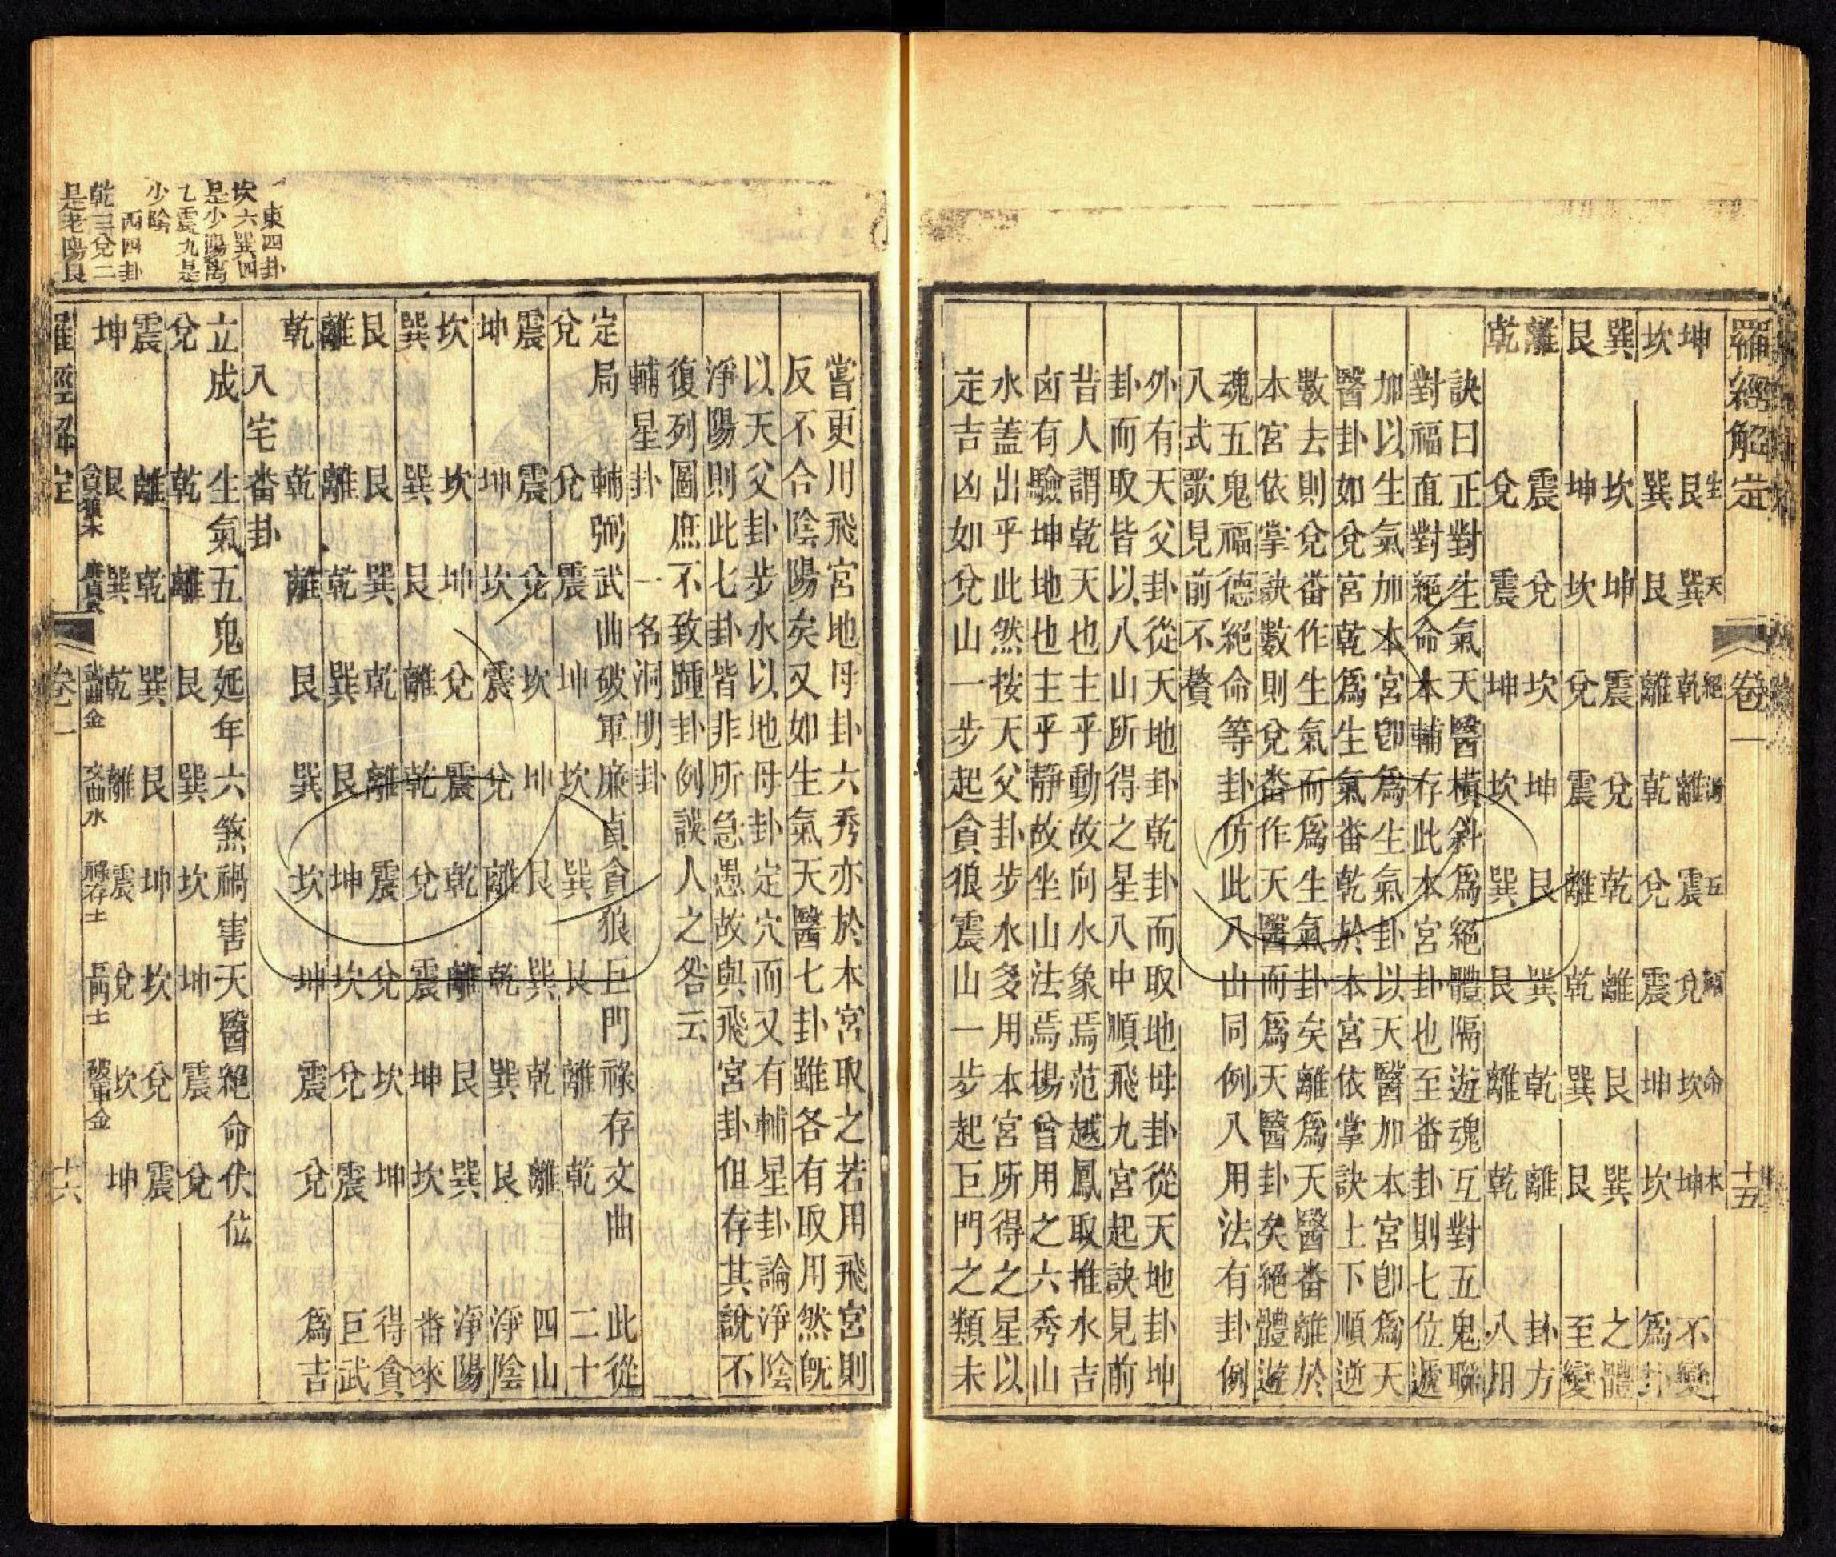 羅經解定 卷一 十五
坤 艮生 巽天 乾絕 離禍 震五 兌輔 坎命 坤本 不變
坎 巽 艮 離 乾 兌 震 坤 坎 為卦
巽 坎 坤 震 兌 乾 離 艮 巽 之體
艮 坤 坎 兌 震 離 乾 巽 艮 至變
離 震 兌 坎 坤 艮 巽 乾 離 卦方
乾 兌 震 坤 坎 巽 艮 離 乾 八用
訣曰正對生氣天醫橫斜為絕體隔遊魂互對五鬼聯
對福直對絕命本輔存此本宮卦也至番卦則七位遞
加以生氣加本宮卽為生氣卦以天醫加本宮卽為天
醫卦如兌宮乾為生氣番乾於本宮依掌訣上下順逆
數去則兌番作生氣而為生氣卦矣離為天醫番離於
本宮依掌訣數則兌番作天醫而為天醫卦矣絕體遊
魂五鬼福德絕命等卦仿此八山同例八用法有卦例
八式歌見前不贅
外有天父卦從天地卦乾卦而取地母卦從天地卦坤
卦而取皆以八山所得之星八中順飛九宮起訣見前
昔人謂乾天也主乎動故向水象焉范越鳳取推水吉
凶有驗坤地也主乎靜故坐山法焉楊曾用之六秀山
水蓋出乎此然按天父卦步水多用本宮所得之星以
定吉凶如兌山一步起貪狼震山一步起巨門之類未
嘗更用飛宮地母卦六秀亦於本宮取之若用飛宮則
反不合陰陽矣又如生氣天醫七卦雖各有取用然旣
以天父卦步水以地母卦定穴而又有輔星卦論淨陰
淨陽則此七卦皆非所急愚故與飛宮卦但存其說不
復列圖庶不致踵卦例誤人之咎云
輔星卦一名洞明卦
定局 輔弼武曲破軍廉貞貪狼巨門祿存文曲 此從
兌 兌 震 坤 坎 巽 艮 離 乾 二十
震 震 兌 坎 坤 艮 巽 乾 離 四山
坤 坤 坎 震 兌 離 乾 巽 艮 淨陰
坎 坎 坤 兌 震 乾 離 艮 巽 淨陽
巽 巽 艮 離 乾 兌 震 坤 坎 番來
艮 艮 巽 乾 離 震 兌 坎 坤 得貪
離 離 乾 巽 艮 坤 坎 兌 震 巨武
乾 乾 離 艮 巽 坎 坤 震 兌 為吉
八宅番卦
立成 生氣五鬼延年六煞禍害天醫絕命伏位
兌 乾 離 艮 巽 坎 坤 震 兌
震 離 乾 巽 艮 坤 坎 兌 震
坤 艮 巽 乾 離 震 兌 坎 坤
貪狼木 廉貞火 武曲金 文曲水 祿存土 巨門土 破軍金
羅經解定 卷一 十六
東四卦
坎六巽四
是少陽离
七震九是
少陰
西四卦
乾三兌二
是老陽艮